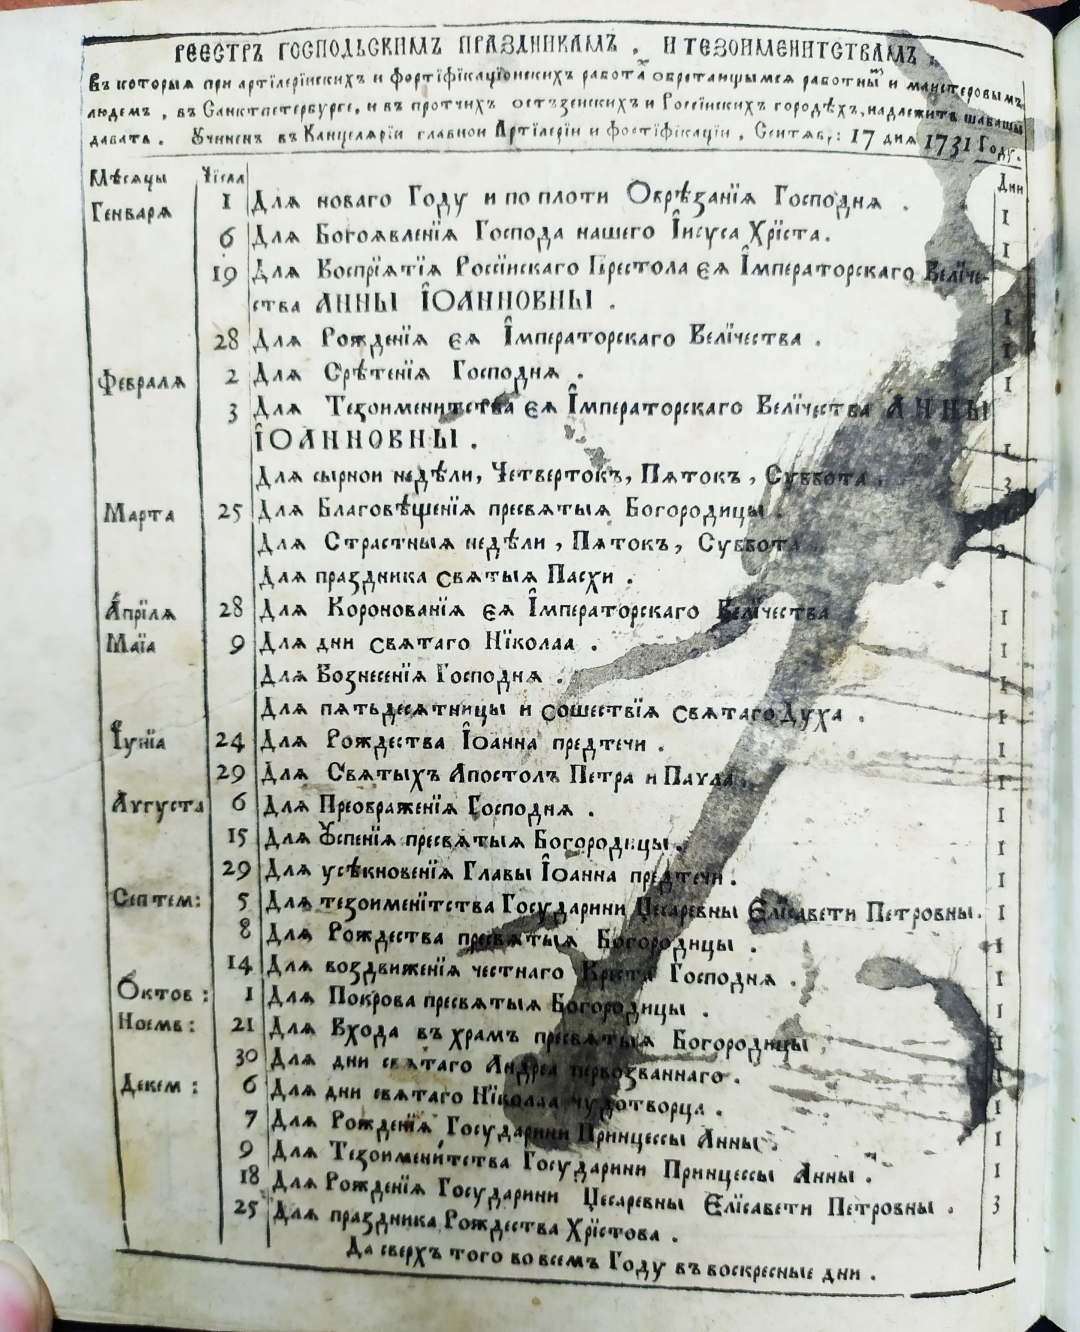 РЕЕСТРЪ ГОСПОДЬСКИМЪ ПРАЗДНИКАМЪ, И ТЕЗОИМЕНИТСТВАМЪ,
Въ которыя при артїлерїискихъ и фортїфїкацїонскихъ работахъ обретающымся работнымъ и маистеровымъ
людемъ, въ Санктпетербурге, и въ протчихъ остъзеискихъ и Россїискихъ городѣхъ, надлежитъ шабашы
давать. Ꙋчиненъ въ Канцелярїи главнои Артїлерїи и фортїфїкацїи, Сентяб,: 17 дня 1731 Году.
Мѣсяцы Чїсла Дни
Генваря 1 Для новаго Году и по плоти Обрѣзанїя Господня . 1
6 Для Богоявленїя Господа нашего Іисуса Хрїста. 1
19 Для Воспрїятїя Россїискаго Престола ея Імператорскаго Велїче-
ства АННЫ ІОАННОВНЫ . 1
28 Для Рожденїя ея Імператорскаго Велїчества . 1
Февраля 2 Для Срѣтенїя Господня . 1
3 Для Тезоименитства ея Імператорскаго Велїчества АННЫ
ІОАННОВНЫ . 1
Для сырнои недѣли, Четвертокъ, Пятокъ, Суббота . 3
Марта 25 Для Благовѣщенїя пресвятыя Богородицы .
Для Страстныя недѣли, Пятокъ, Суббота 2
Для праздника святыя Пасхи .
Апрїля 28 Для Коронованїя ея Імператорскаго Велїчества 1
Маїа 9 Для дни святаго Нїколаа . 1
Для Вознесенїя Господня . 1
Для пятьдесятницы и сошествїя святаго Духа . 1
Іунїа 24 Для Рождества Іоанна предтечи . 1
29 Для Святыхъ Апостолъ Петра и Паула . 1
Августа 6 Для Преображенїя Господня . 1
15 Для Ꙋспенїя пресвятыя Богородицы . 1
29 Для усѣкновенїя Главы Іоанна предтечи . 1
Септем: 5 Для тезоименїтства Государини Цесаревны Елїсавети Петровны. 1
8 Для Рождества пресвятыя Богородицы . 1
14 Для воздвиженїя честнаго Креста Господня . 1
Октов: 1 Для Покрова пресвятыя Богородицы . 1
Ноемв: 21 Для Входа въ храмъ пресвятыя Богородицы , 1
30 Для дни святаго Андреа первозваннаго . 1
Декем: 6 Для дни святаго Нїколаа чудотворца . 1
7 Для Рожденїя Государини Принцессы Анны . 1
9 Для Тезоименитства Государини Принцессы Анны . 1
18 Для Рожденїя Государини Цесаревны Елїсавети Петровны .
25 Для праздника Рождества Хрїстова . 3
Да сверхъ того во всемъ Году въ воскресные дни .